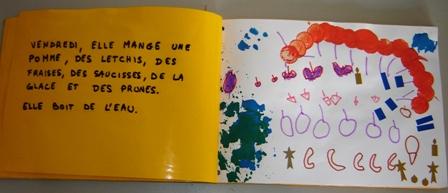 VENDREDI, ELLE MANGE UNE
POMME, DES LETCHIS, DES
FRAISES, DES SAUCISSES, DE LA
GLACE ET DES PRUNES.
ELLE BOIT DE L'EAU.